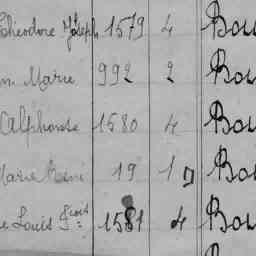 Théodore Joseph 1579 4 Bou
n Marie 992 2 Bou
Alphonse 1580 4 Bou
Marie René 19 1 Bou
e Louis Frçois 1581 4 Bou